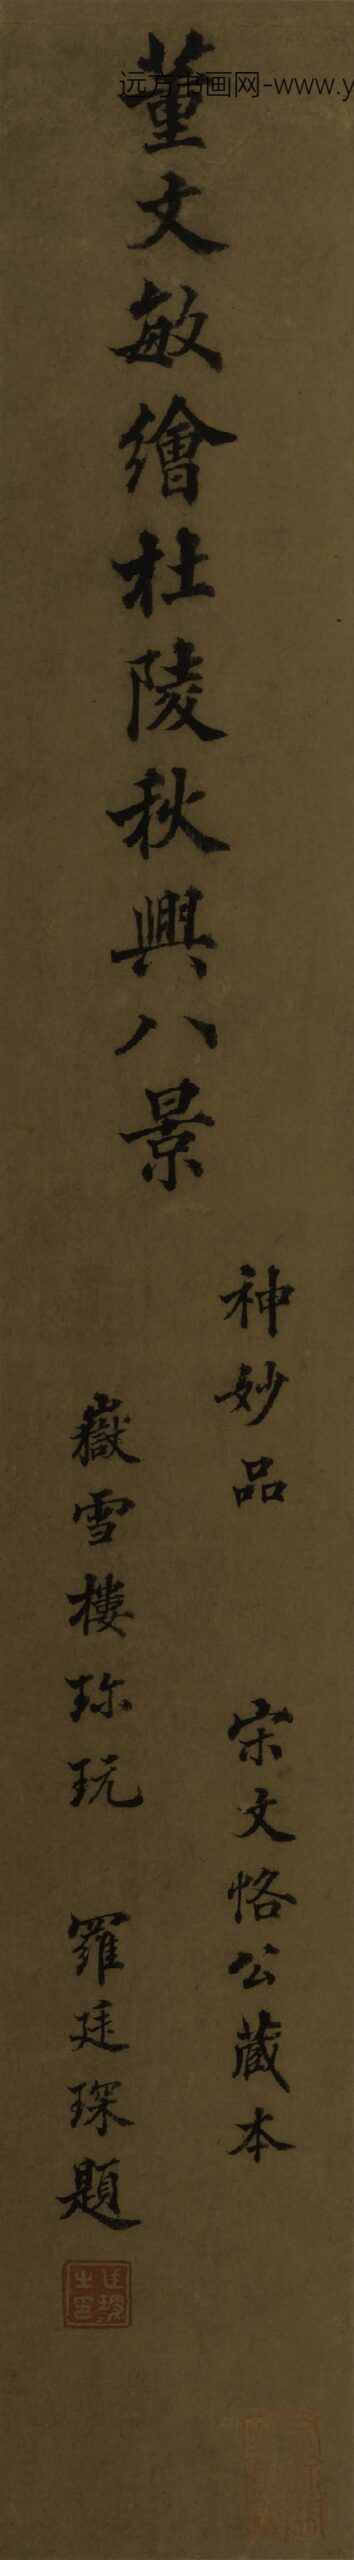 远方书画网-www.y
董文敏繪杜陵秋興八景
神妙品 宋文恪公藏本
嶽雪樓珎玩 羅廷琛題
廷琛之印